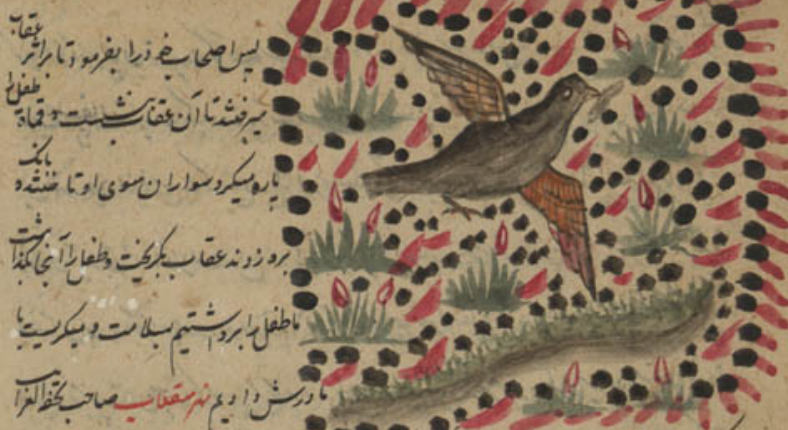 پس اصحاب خود را بفرمود تا بر اثر عقاب
میرفتند تا آن عقاب بنشست و قماط طفل را
پاره میکرد سواران سوی او تاختند بانک
برو زدند عقاب بگریخت و طفل را آنجا بگذاشت
ما طفل را برداشتیم بسلامت و میگریست با
مادرش دادیم صاحب تحفة الغرایب